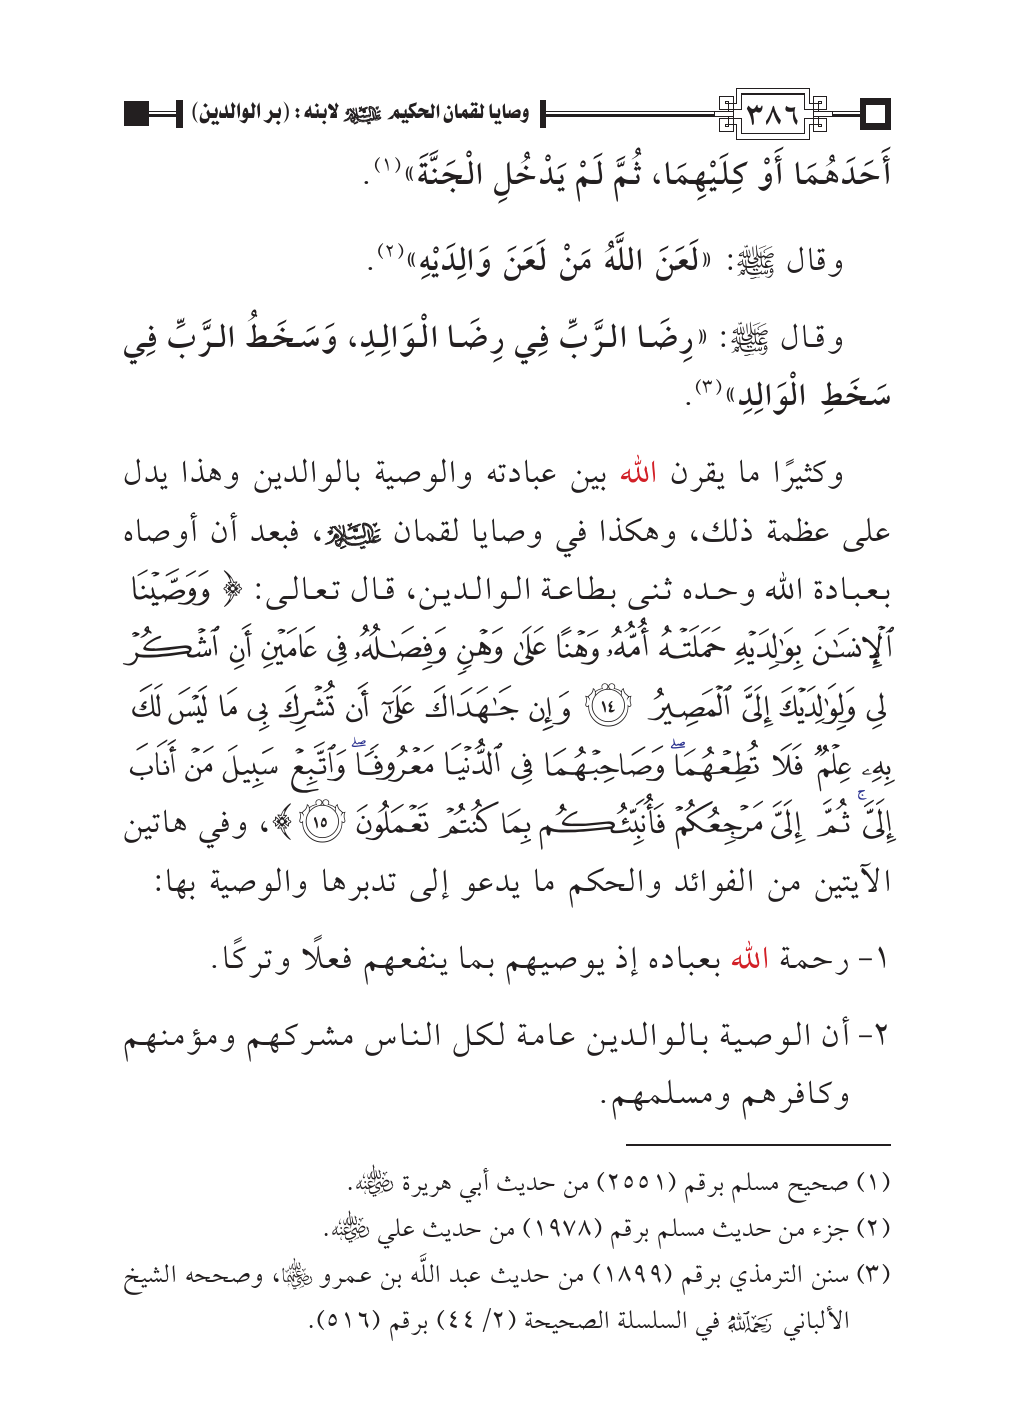 ٣٨٦ وصايا لقمان الحكيم عليه السلام لابنه : (بر الوالدين)
أَحَدَهُمَا أَوْ كِلَيْهِمَا، ثُمَّ لَمْ يَدْخُلِ الْجَنَّةَ»(١).
وقال ﷺ: «لَعَنَ اللَّهُ مَنْ لَعَنَ وَالِدَيْهِ»(٢).
وقال ﷺ: «رِضَا الرَّبِّ فِي رِضَا الْوَالِدِ، وَسَخَطُ الرَّبِّ فِي
سَخَطِ الْوَالِدِ»(٣).
وكثيرًا ما يقرن الله بين عبادته والوصية بالوالدين وهذا يدل
على عظمة ذلك، وهكذا في وصايا لقمان عليه السلام، فبعد أن أوصاه
بعبادة الله وحده ثنى بطاعة الوالدين، قال تعالى: ﴿ وَوَصَّيْنَا
ٱلْإِنسَٰنَ بِوَٰلِدَيْهِ حَمَلَتْهُ أُمُّهُۥ وَهْنًا عَلَىٰ وَهْنٍ وَفِصَٰلُهُۥ فِى عَامَيْنِ أَنِ ٱشْكُرْ
لِى وَلِوَٰلِدَيْكَ إِلَىَّ ٱلْمَصِيرُ ١٤ وَإِن جَٰهَدَاكَ عَلَىٰٓ أَن تُشْرِكَ بِى مَا لَيْسَ لَكَ
بِهِۦ عِلْمٌ فَلَا تُطِعْهُمَا ۖ وَصَاحِبْهُمَا فِى ٱلدُّنْيَا مَعْرُوفًا ۖ وَٱتَّبِعْ سَبِيلَ مَنْ أَنَابَ
إِلَىَّ ۚ ثُمَّ إِلَىَّ مَرْجِعُكُمْ فَأُنَبِّئُكُم بِمَا كُنتُمْ تَعْمَلُونَ ١٥ ﴾، وفي هاتين
الآيتين من الفوائد والحكم ما يدعو إلى تدبرها والوصية بها:
١- رحمة الله بعباده إذ يوصيهم بما ينفعهم فعلًا وتركًا.
٢- أن الوصية بالوالدين عامة لكل الناس مشركهم ومؤمنهم
وكافرهم ومسلمهم.
(١) صحيح مسلم برقم (٢٥٥١) من حديث أبي هريرة رضي الله عنه.
(٢) جزء من حديث مسلم برقم (١٩٧٨) من حديث علي رضي الله عنه.
(٣) سنن الترمذي برقم (١٨٩٩) من حديث عبد اللَّه بن عمرو رضي الله عنهما، وصححه الشيخ
الألباني رحمه الله في السلسلة الصحيحة (٢/ ٤٤) برقم (٥١٦).